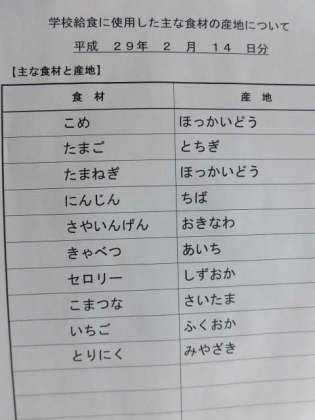 学校給食に使用した主な食材の産地について
平成 29年 2 月 14 日分
【主な食材と産地】
食 材 産 地
こめ ほっかいどう
たまご とちぎ
たまねぎ ほっかいどう
にんじん ちば
さやいんげん おきなわ
きゃべつ あいち
セロリー しずおか
こまつな さいたま
いちご ふくおか
とりにく みやざき